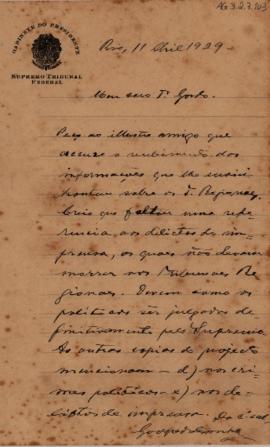 AG 3.2.7.103
GABINETE DO PRESIDENTE
SUPREMO TRIBUNAL
FEDERAL
Rio, 11 Abril 1929.
Meu caro Dr. Gordo.
Peço ao illustre amigo que
accuse o recebimento das
informações que lhe
hontem sobre os
Creio que faltou uma refe
rencia, aos delictos de im
prensa, os quaes não devem
morrer nos Tribunaes Re
gionaes. Devem como os
politicos ser julgados de
finitivamente pelo Supremo.
As outras copias do projecto
mencionam - d) nos cri
mes politicos - e) nos de
lictos de imprensa. Do
Godofredo Cunha